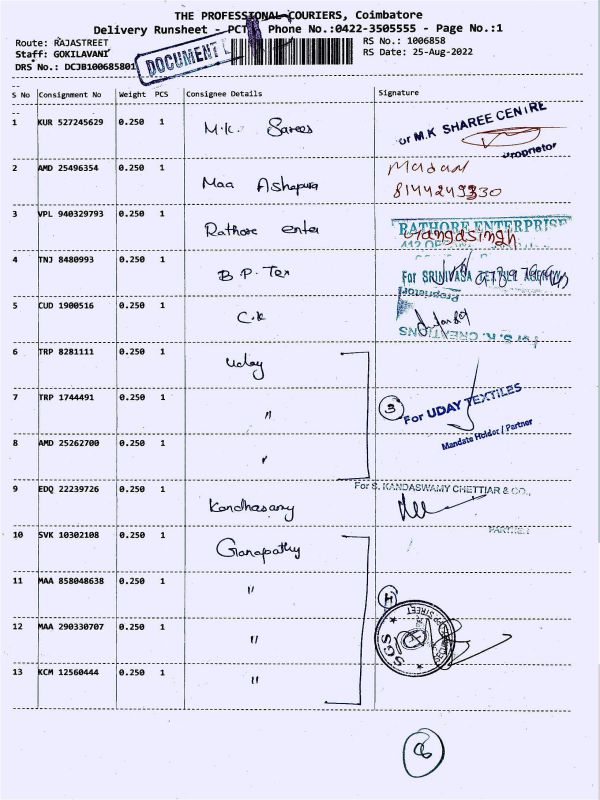 THE PROFESSIONAL COURIERS, Coimbatore
Delivery Runsheet - PCT Phone No.:0422-3505555 - Page No.:1
Route: RAJASTREET RS No.: 1006858
Staff: GOKILAVANI RS Date: 25-Aug-2022
DRS No.: DCJB100685801
DOCUMENT
S No Consignment No Weight PCS Consignee Details Signature
1 KUR 527245629 0.250 1 M.K. Sarees
For M.K SHAREE CENTRE
Proprietor
2 AMD 25496354 0.250 1 Maa Ashapura
Madan
8144249330
3 VPL 940329793 0.250 1 Rathore enter
RATHORE ENTERPRISE
Gangasingh
4 TNJ 8480993 0.250 1 B.P. Tex
For SRINIVASA
Proprietor
5 CUD 1900516 0.250 1 C.K
For S. K. CREATIONS
6 TRP 8281111 0.250 1 Uday
7 TRP 1744491 0.250 1 "
3
For UDAY TEXTILES
Mandate Holder / Partner
8 AMD 25262700 0.250 1 "
9 EDQ 22239726 0.250 1 Kandhasamy
For S. KANDASWAMY CHETTIAR & CO.,
PARTNER
10 SVK 10302108 0.250 1 Ganapathy
11 MAA 858048638 0.250 1 "
4
12 MAA 290330707 0.250 1 "
SGS
STREET
13 KCM 12560444 0.250 1 "